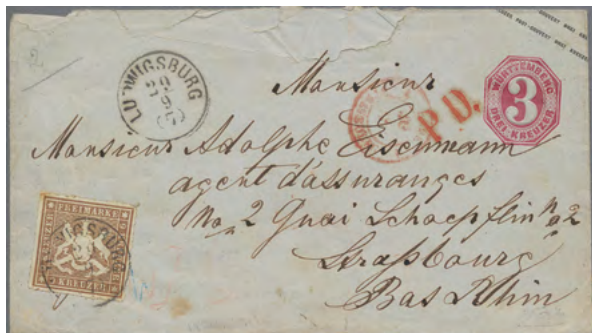 2
LUDWIGSBURG
20
9
(7)
WÜRTTEMBERG
3
DREI-KREUZER
P.D.
Monsieur
Monsieur Adolphe Eisenmann
agent d'assurances
No 2 Quai Schoepflin No 2
Straßbourg
Bas Rhin
FREIMARKE
KREUZER
LUDWIGSBURG